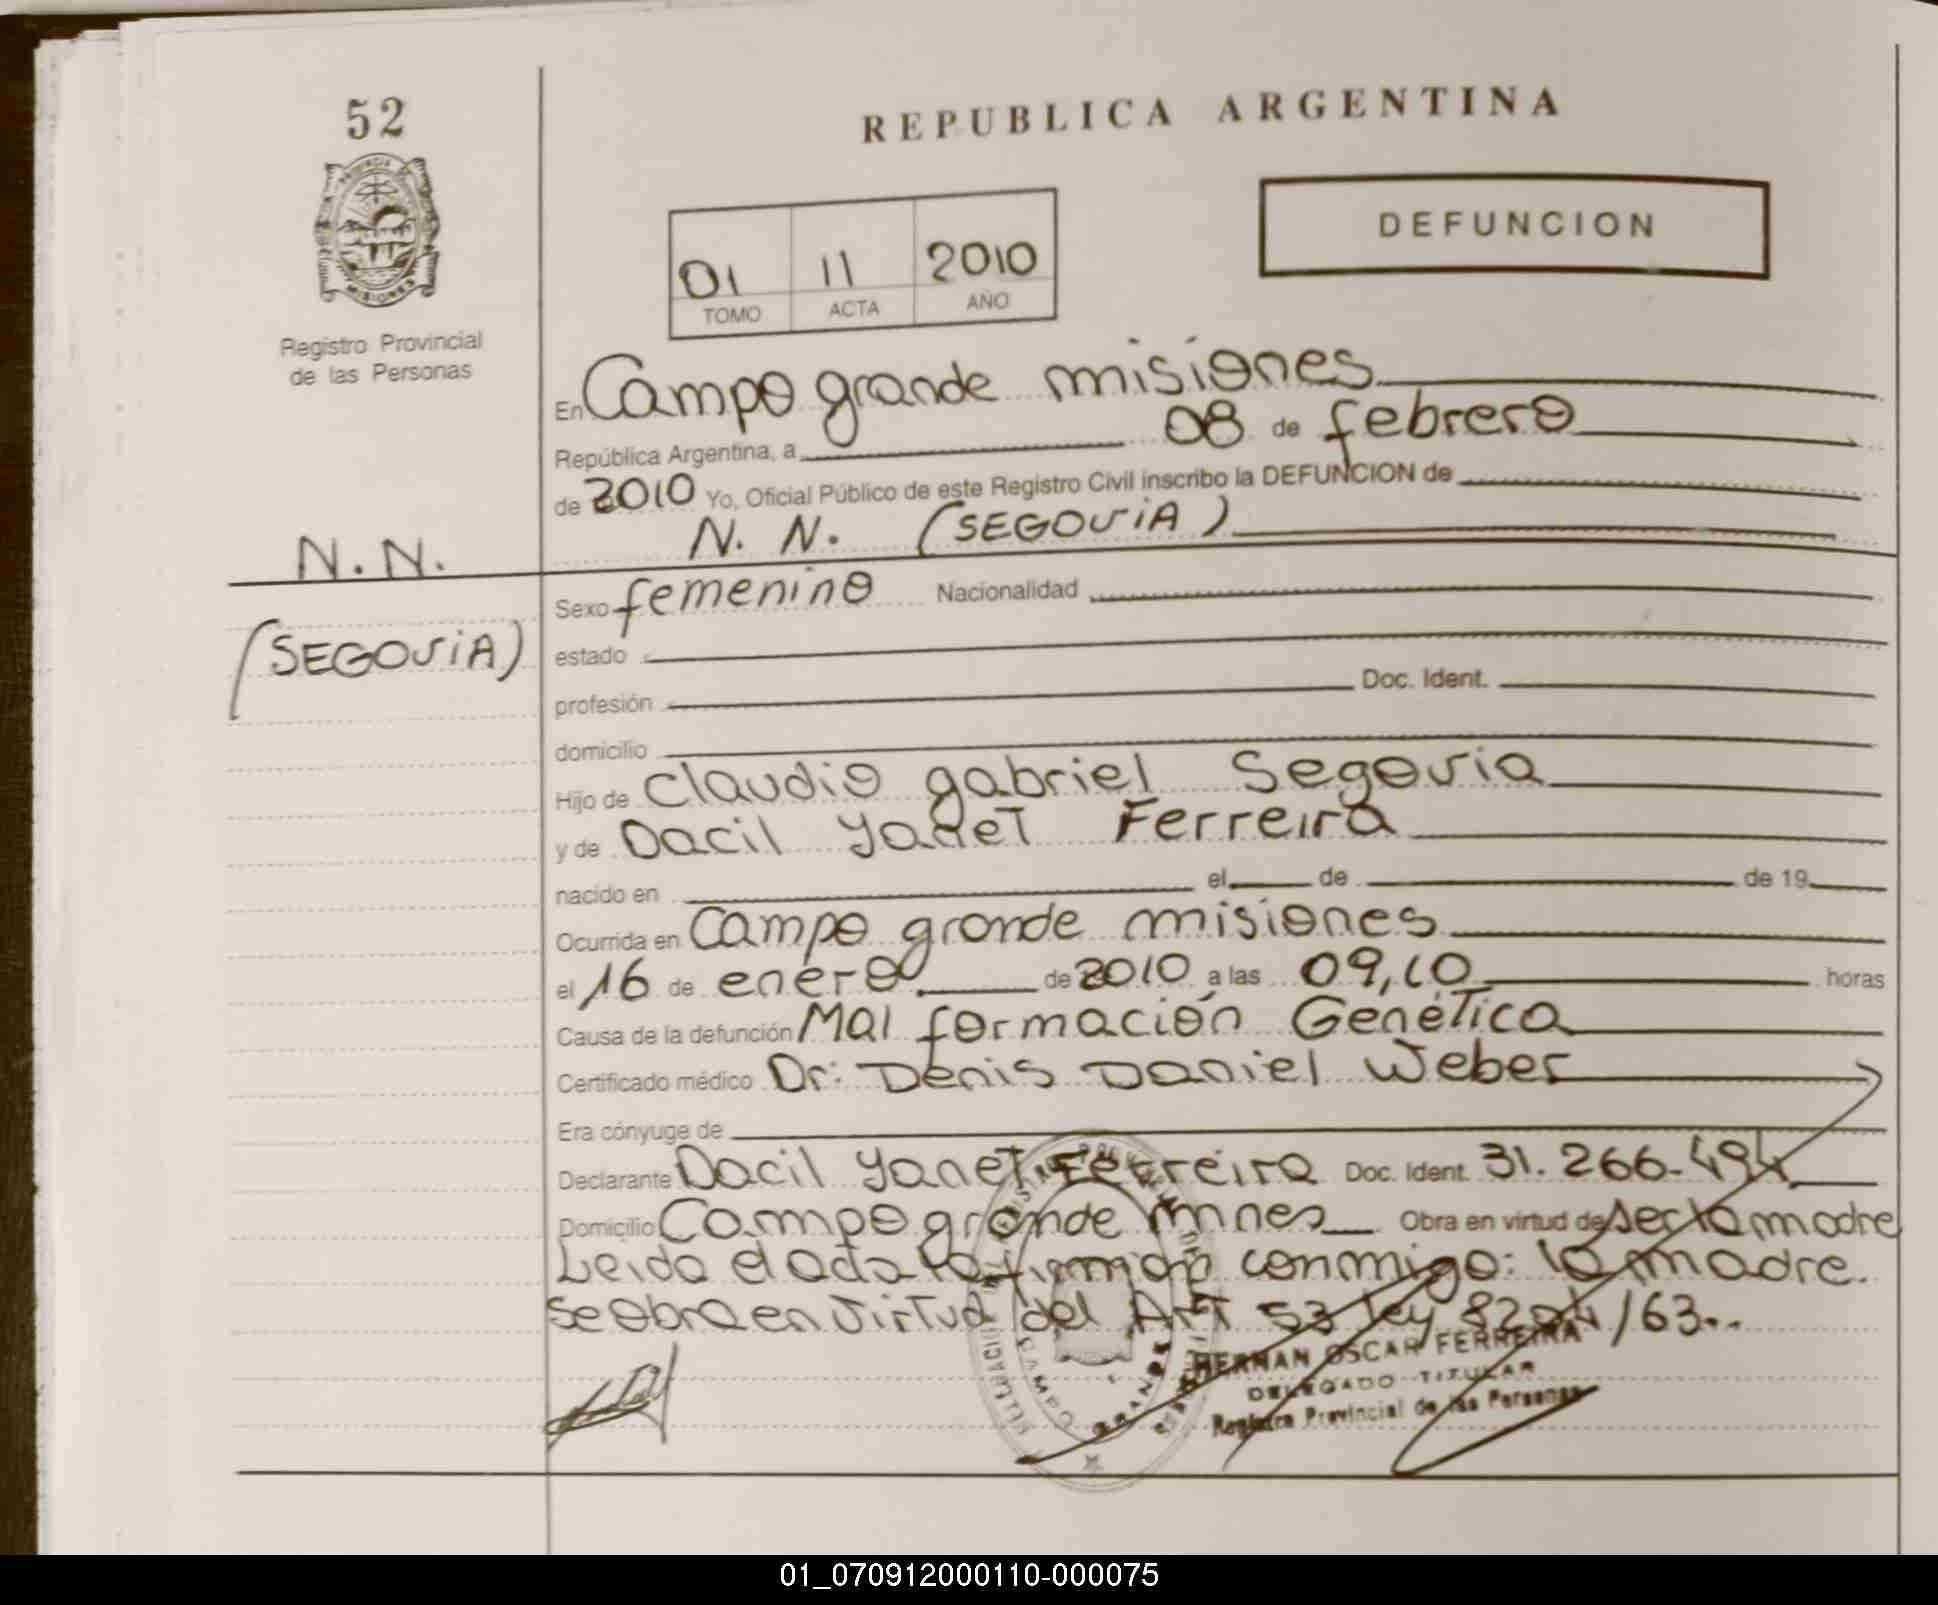 52
REPUBLICA ARGENTINA
PROVINCIA
MISIONES
Registro Provincial
de las Personas
01 11 2010
TOMO ACTA AÑO
DEFUNCION
En Campo grande misiones
República Argentina, a 08 de febrero
de 2010 Yo, Oficial Público de este Registro Civil inscribo la DEFUNCION de
N. N. (SEGOViA)
N.N.
(SEGOViA)
Sexo femenino Nacionalidad
estado
profesión Doc. Ident.
domicilio
Hijo de Claudio gabriel Segovia
y de Dacil Yanet Ferreira
nacido en el de de 19
Ocurrida en Campo grande misiones
el 16 de enero de 2010 a las 09,10 horas
Causa de la defunción Mal formación Genética
Certificado médico Dr: Denis Daniel Weber
Era cónyuge de
Declarante Dacil Yanet Ferreira Doc. Ident. 31.266.494
Domicilio Campo grande mnes Obra en virtud de ser la madre
Leida el acta la firman conmigo: la madre.
Se obra en virtud del Art 53 ley 8204/63..
CAMPO GRANDE
HERNAN OSCAR FERREIRA
DELEGADO TITULAR
Registro Provincial de las Personas
01_070912000110-000075